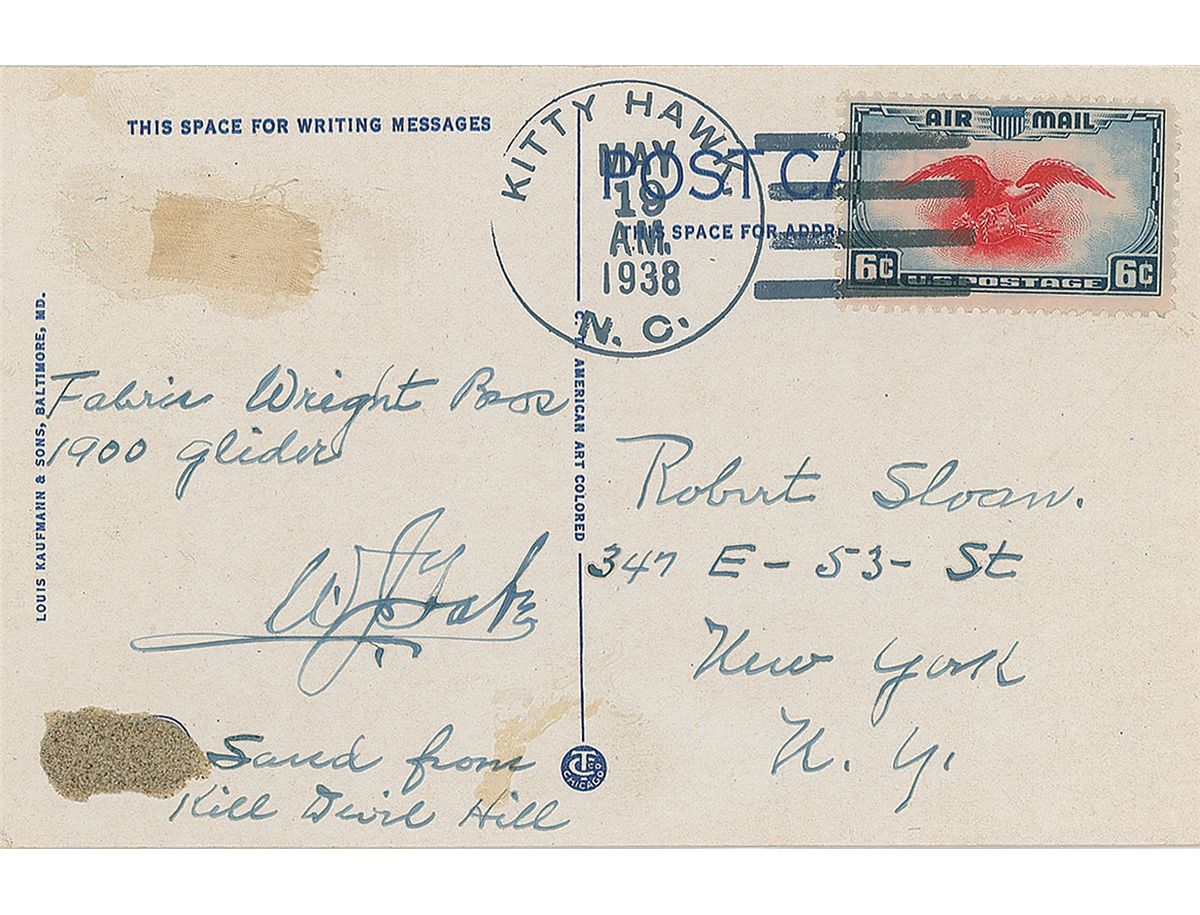 THIS SPACE FOR WRITING MESSAGES
KITTY HAWK
MAY
19
A.M.
1938
N. C.
POST CA
THIS SPACE FOR ADDR
AIR MAIL
6¢ U.S. POSTAGE 6¢
LOUIS KAUFMANN & SONS, BALTIMORE, MD.
Fabric Wright Bros
1900 glider
Sand from
Kill Devil Hill
AMERICAN ART COLORED
CHICAGO
Robert Sloan.
347 E - 53 - St
New York
N. Y.